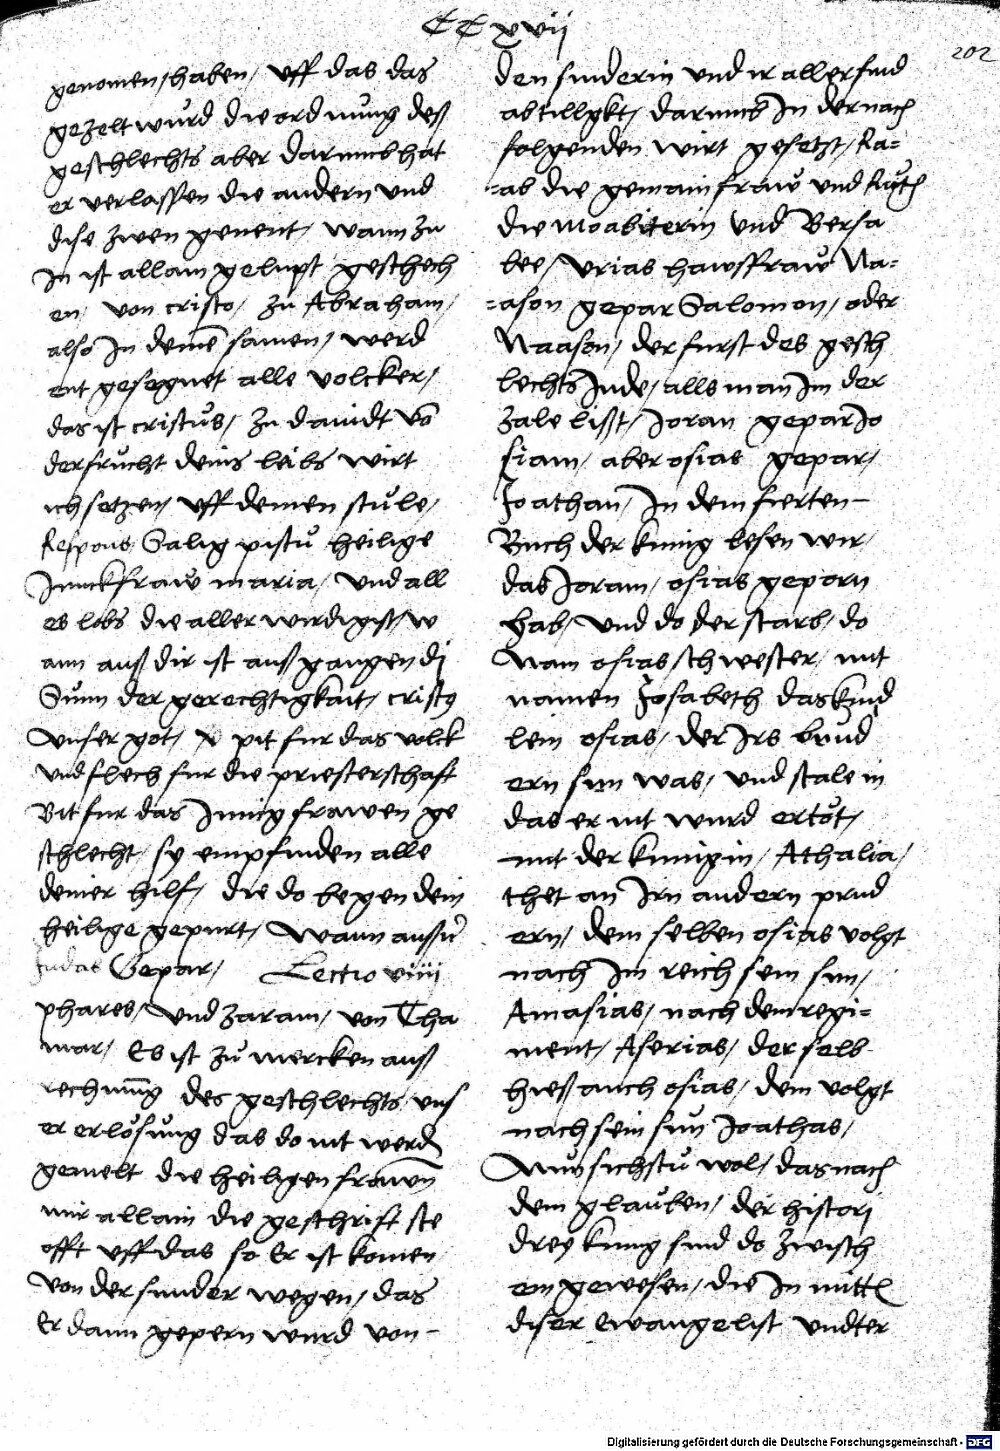 CCxvii
202
genomen / haben / uff das das
gezelt wurd die ordnung deß
geschlechts aber darumb hat
er verlassen die andern und
dise zwen genent / wann zu
In ist allain gelupt geschech
en / von cristo / zu Abraham /
also In deinē samen / werd
ent gesegnet alle volcker /
das ist cristus / zu dauidt vō
der frucht deins leibs wirt
ich setzen / uff deinen stule /
Respons Salig pistu heilige
Junckfraw maria / und all
es lobs die aller wirdigist / w
ann auß dir ist auß gangen di
Sunn der gerechtigkait / cristꝯ
unser got / pit fur das volck
und flech fur die priesterschaft
Bit fur das Junig frawen ge
schlecht / sy empfinden alle
deiner hilf / die do begen dein
heilige gepurt / Wann
Judas Gepar / Lectio viiii
phares / und zaram / von Tha
mar / Es ist zu mercken auß
rechnūg des geschlechts uns
er erlösung das do nit werdē
gemelt die heiligen frawen
nur allain die geschrift ste
offt uff das so Er ist komen
von der sunder wegen / das
Er dann gepern wurd von -
den sunderin und ir aller sund
abtillgkt / darumb In der nach
folgenden wirt gesetzt / Ra=
=ab die gemain fraw und Ruth
die Moabiterin und Bersa
bee / Urias hawsfraw Na=
=ason gepar Salomon / oder
Naason / der furst des gesch
lechts Jude / alls man Im der
zale lißt / Joran gepar Jo
siam / aber osias gepar /
Joathan / In dem fierten -
Buch der kunig lesen wir /
das Joram / osias geporn
hab / und do der starb / do
Nam osias schwester / mit
namen Josabeth das kind
lein osias / der Irs brud
ern sun was / und stale in
das er nit wurd ertöt /
mit der kunigin / Athalia /
thet an Irn andern prud
ern / dem selben osias volgt
nach Im reich sein sun /
Amasias / nach dem regi=
ment / Aserias / der selb
hieß auch osias / dem volgt
nach sein sun Joathas /
Nun sichstu wol / das nach
dem glauben / der histori
drey kunig sind do zwisch
en gewesen / die In mittl
diser ewangelist undter
Digitalisierung gefördert durch die Deutsche Forschungsgemeinschaft - DFG